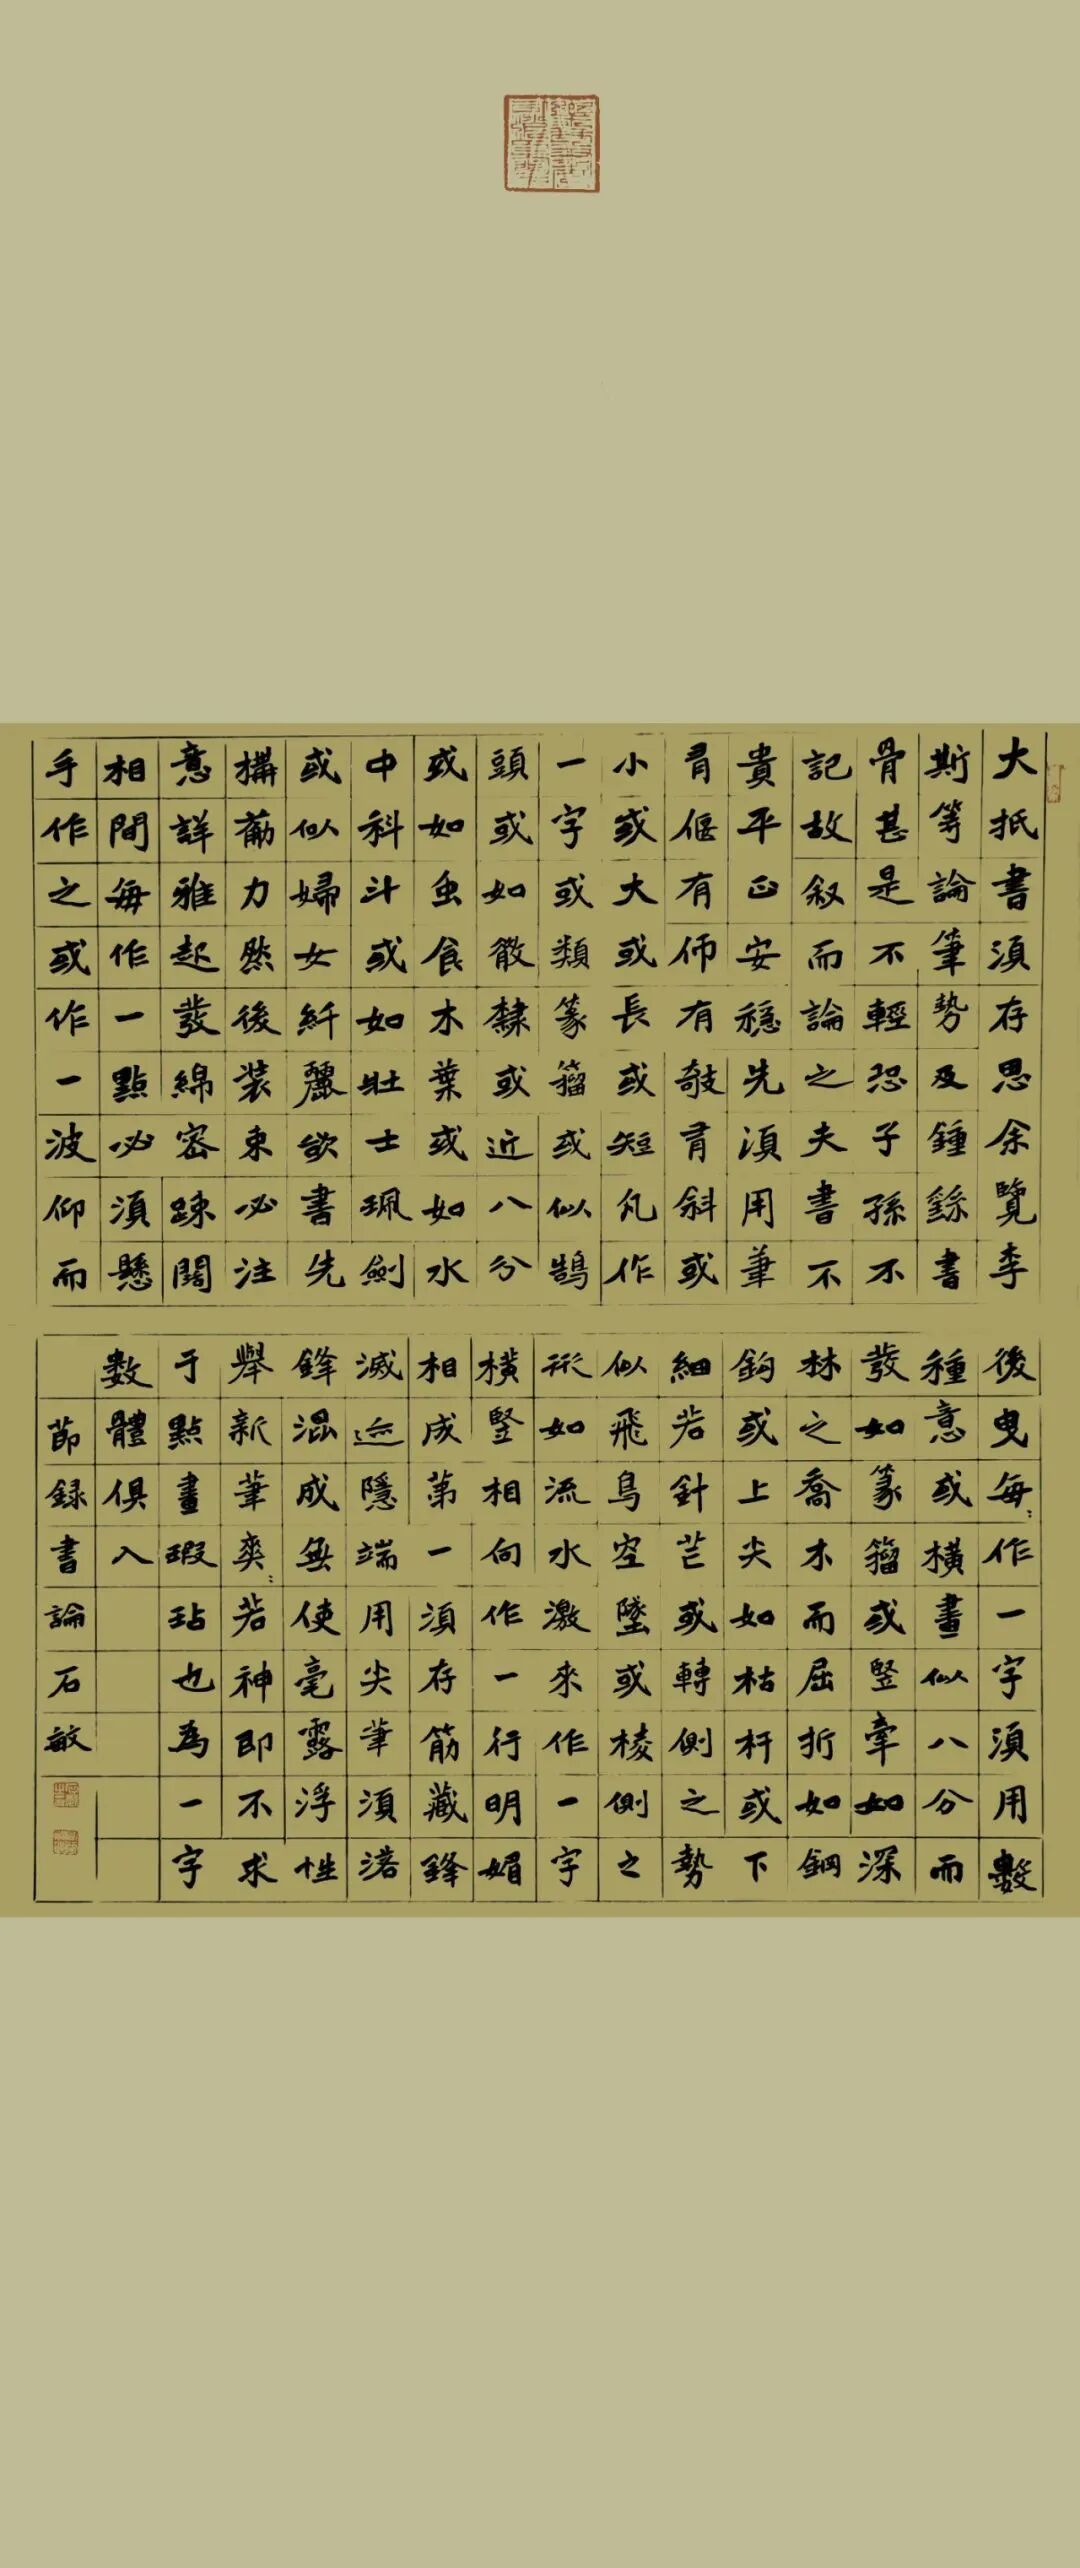 大抵書須存思余覽李
斯等論筆勢及鍾繇書
骨甚是不輕恐子孫不
記故敘而論之夫書不
貴平正安穩先須用筆
有偃有仰有攲有斜或
小或大或長或短凡作
一字或類篆籀或似鵠
頭或如散隸或近八分
或如虫食木葉或如水
中科斗或如壯士珮劍
或似婦女纤麗欲書先
構莇力然後装束必注
意詳雅起發綿密踈闊
相間每作一點必須懸
手作之或作一波仰而
後曳每:作一字須用數
種意或橫畫似八分而
發如篆籀或竪牽如深
林之喬木而屈折如鋼
鈎或上尖如枯杆或下
細若針芒或轉側之勢
似飛鳥空墜或棱側之
形如流水激來作一字
橫竪相向作一行明媚
相成第一須存筋藏鋒
滅迹隱端用尖筆須落
鋒混成無使毫露浮性
舉新筆爽:若神即不求
于點畫瑕玷也為一字
數體俱入
節録書論石敏